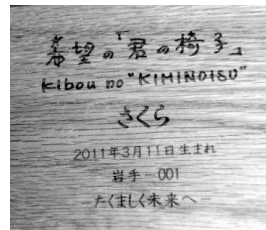 希望の「君の椅子」
kibou no "KIMINOISU"
さくら
2011年3月11日生まれ
岩手-001
たくましく未来へ